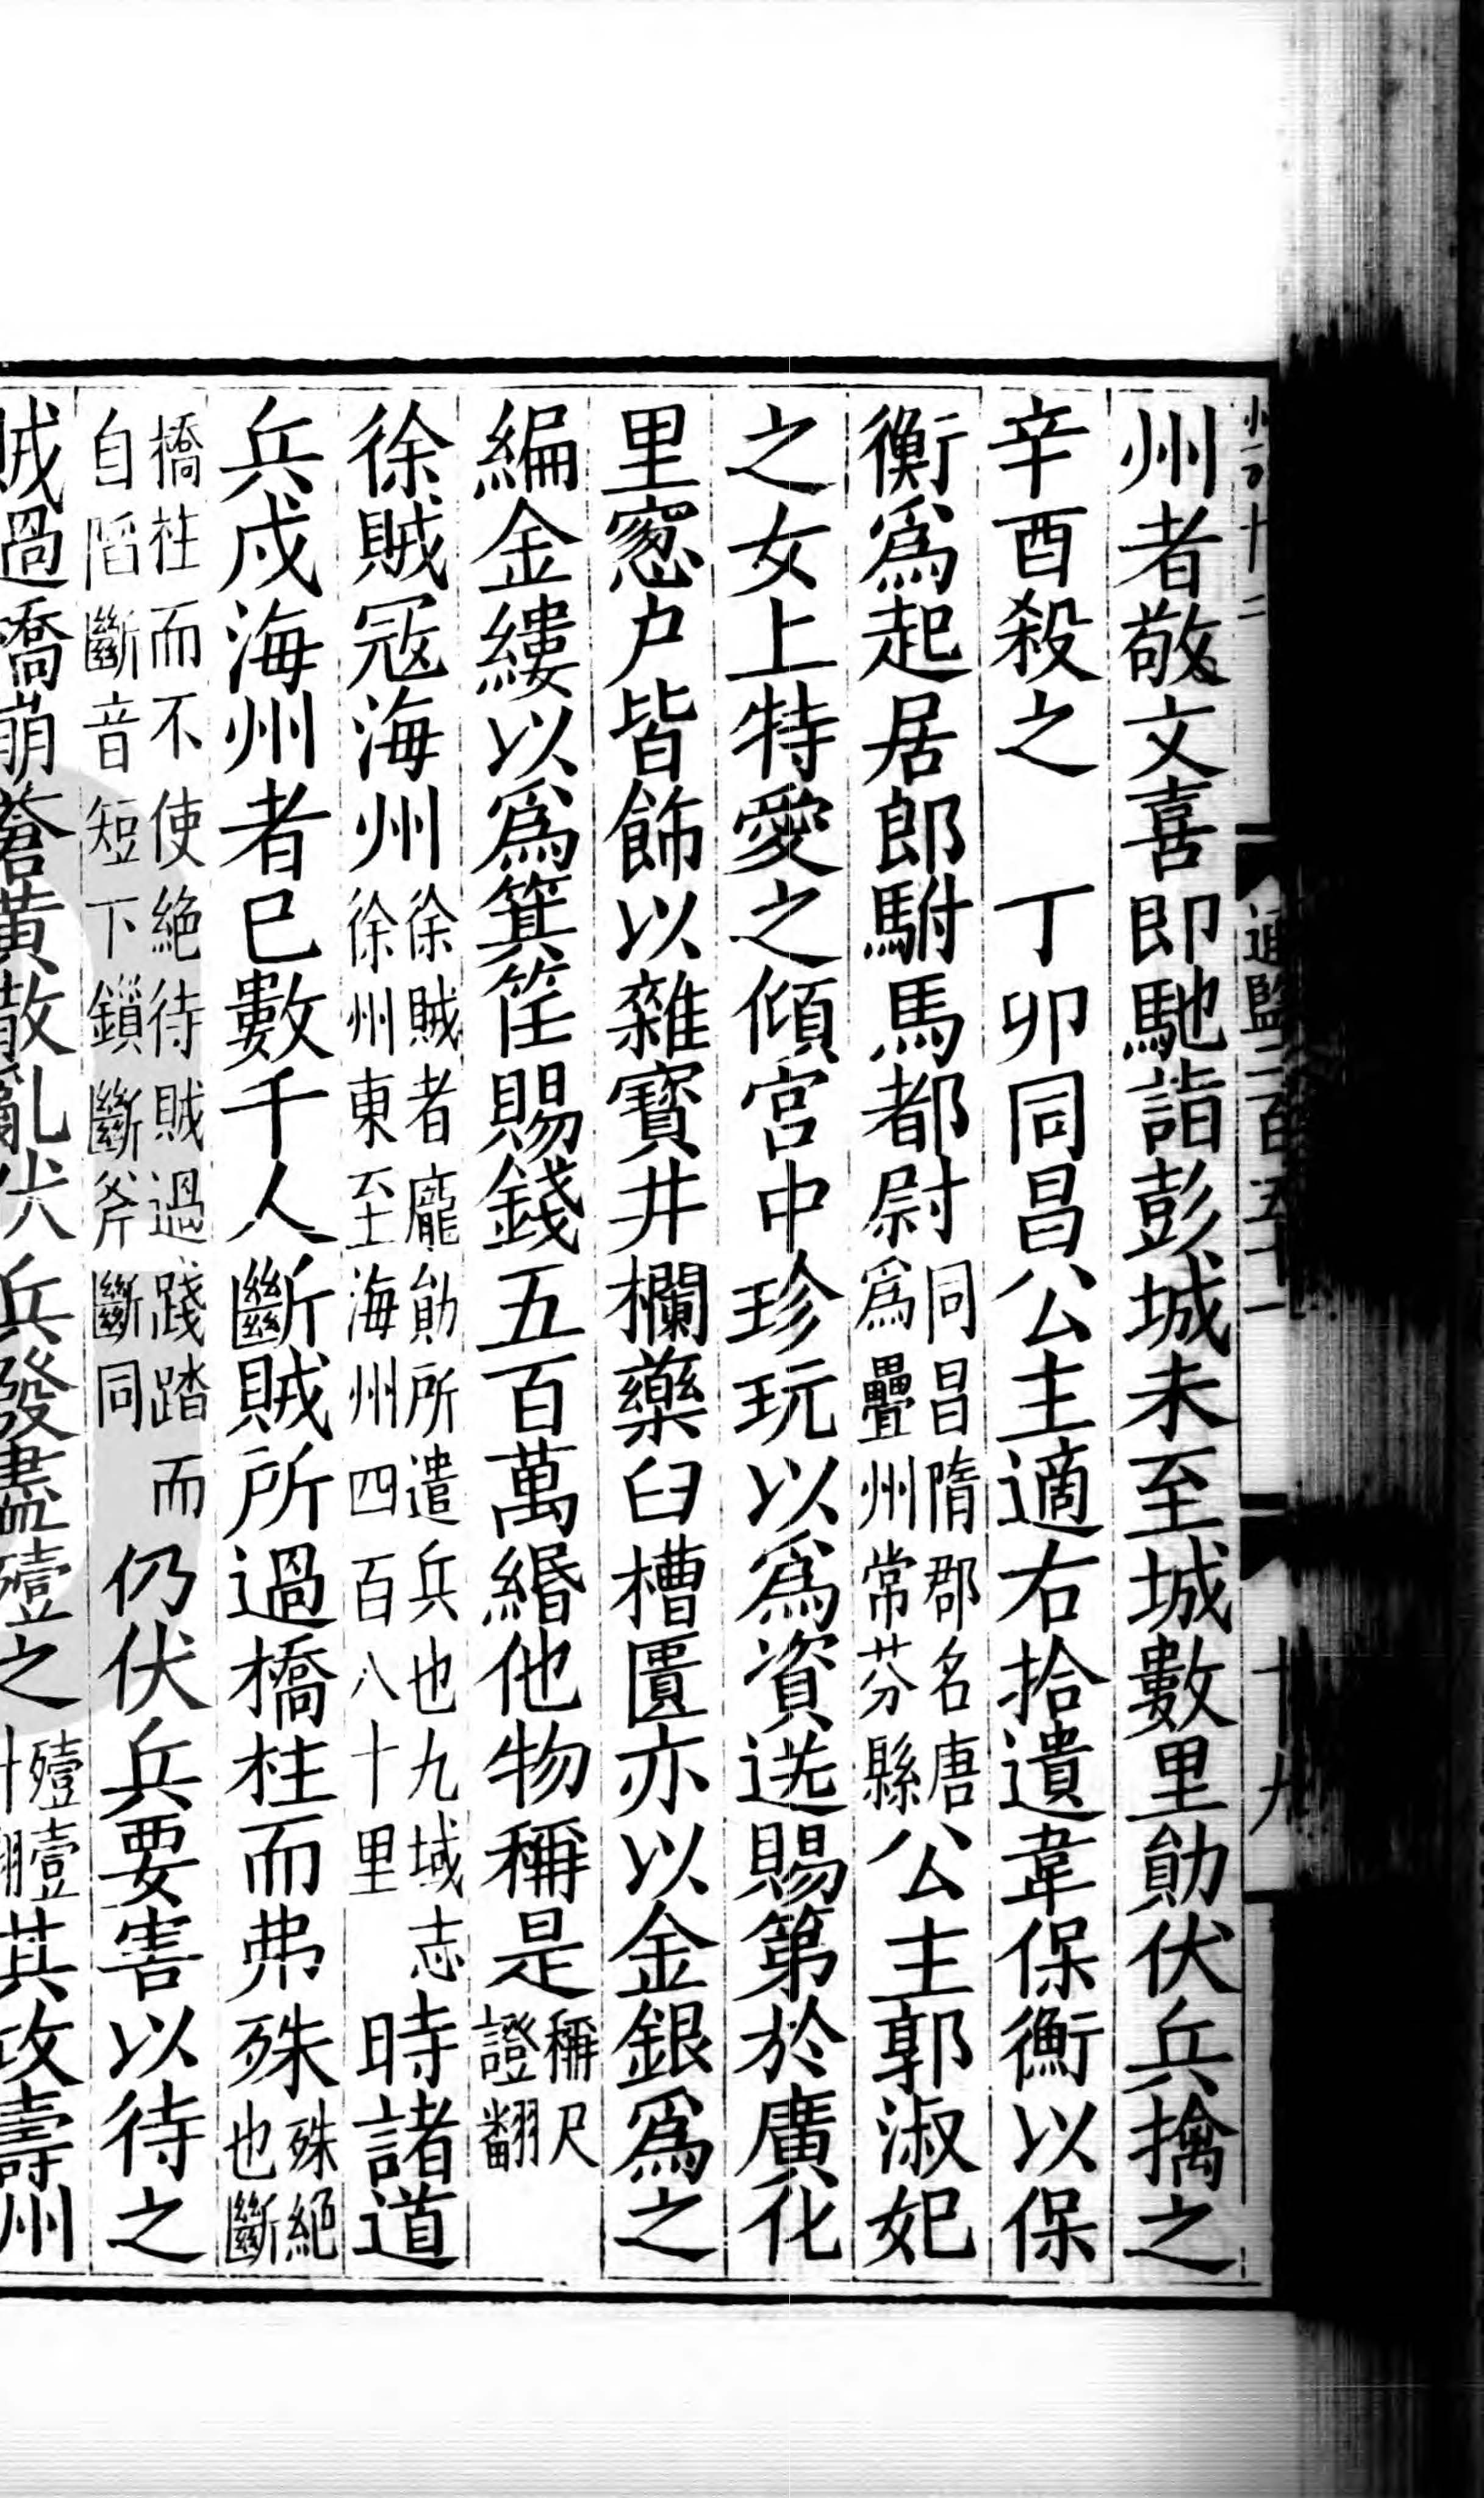 通鑑二百五十一
十九
州者敬文喜即馳詣彭城未至城數里勛伏兵擒之
辛酉殺之　丁卯同昌公主適右拾遺韋保衡以保
衡爲起居郎駙馬都尉同昌隋郡名唐爲疊州常芬縣公主郭淑妃
之女上特愛之傾宮中珍玩以爲資送賜第於廣化
里窻戶皆飾以雜寶井欄藥臼槽匱亦以金銀爲之
編金縷以爲箕筐賜錢五百萬緡他物稱是稱尺證翻
徐賊寇海州徐賊者龐勛所遣兵也九域志徐州東至海州四百八十里時諸道
兵戍海州者已數千人斷賊所過橋柱而弗殊殊絕也斷
橋柱而不使絕待賊過踐踏而自陷斷音短下鎻斷斧斷同仍伏兵要害以待之
賊過橋崩蒼黃散亂伏兵發盡殪之殪壹計翻其攻壽州